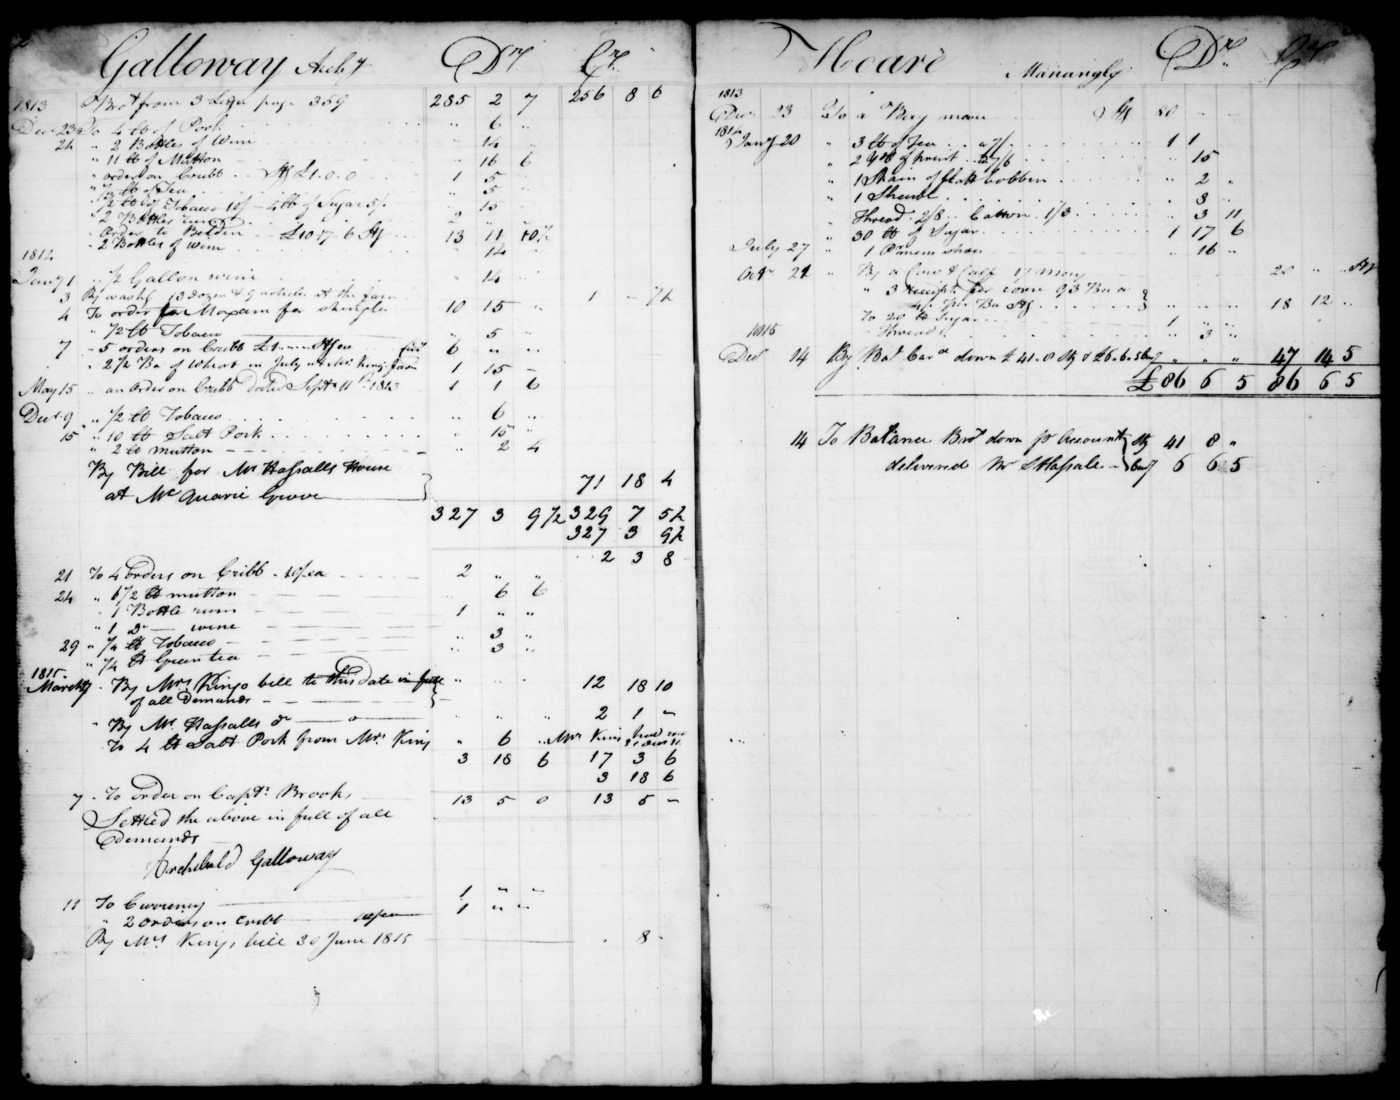 Galloway Archd Dr Cr
1813 Brot from 3 Leger page 359 285 2 7 256 8 6
Decr 23 To 4 lb of Pork " 6 "
24 " 2 Bottles of Wine " 14 "
" 11 lb of Mutton " 16 6
" order on Cribb Stg £1.0.0 1 5
" ½ lb of Tea " 5
" ½ lb of Tobacco 10/- 4 lb of Sugar 5/. " 15
" 2 Bottles rum 2 "
" Order to Belden £10.17.6 Stg 13 11 10½
" 2 Bottles of wine " 14
1814
Jany 1 " ½ Gallon wine " 14
3 By washg 13 dozen & 9 articles at the farm 1 - 7½
4 To order for Moxam for shingles 10 15 "
" ½ lb Tobacco " 5 "
7 " 5 orders on Cribb £1 6 " "
" 2½ Bu of Wheat in July at Mrs Kings farm 1 15 -
May 15 " an order on Cribb dated Septr 11th 1813 1 1 6
Decr 9 " ½ lb Tobacco " 6 "
15 " 10 lb Salt Pork " 15 "
" 2 lb mutton " 2 4
By Bill for Mr Hassalls House
at Mc Quarie Grove 71 18 4
327 3 9½ 329 7 5½
327 3 9½
2 3 8
21 To 4 orders on Cribb 10/ea 2 " "
24 " 6½ lb mutton " 6 6
" 1 Bottle rum 1 " "
" 1 Do wine
29 " ¼ lb Tobacco " 3 "
" ¼ lb Green tea " 3 "
1815
March 7 By Mrs Kings bill to this date in full
of all Demands 12 18 10
" By Mr Hassalls do 2 1 -
To 4 lb Salt Pork from Mrs King " 6 " Mrs King
3 18 6 17 3 6
3 18 6
7 To order on Captn Brooks 13 5 0 13 5 -
Settled the above in full of all
Demands
Archibald Galloway
11 To Currency 1 " "
" 2 orders on Cribb 10/ea 1 " "
By Mrs Kings bill 30 June 1815 8
Hoare Manangly Dr Cr
1813
Decr 23 To a Bay mare Stg 80
1814
Jany 20 " 3 lb of Tea a 7/. 1 1
" 2 yds of print a 7/6 " 15
" 1 Skain of flatt bobben " 2 "
" 1 Shawl " 3 "
" Thread 2/8 Cotton 1/3 " 3 11
" 30 lb of Sugar 1 17 6
July 27 " 1 " 16 "
Octr 21 " By a Cow & Calf 17 20 " " Stg
" 3 receipts for corn 93 Bu a
4/. per Bu Stg 18 12
To 20 lb Sugar 1 "
1815 Thread " 3 "
Decr 14 By Bal Card down £41.8 Stg & £6.6.5 Curr " " " 47 14 5
£86 6 5 86 6 5
14 To Balance Brot down pr Account Stg 41 8 "
delivered Mr S Hassale Curr 6 6 5